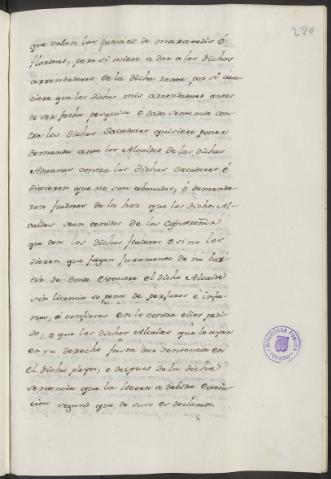 280
que valan las quantias de maravedis é
florines, pero si oviere a dar a los dichos
arrendadores de la dicha renta por si aca-
eciere que los dichos mis arrendadores antes
de ser fecha pesquisa é dada sentencia con
tra los dichos Sacadores quisiere poner
demanda ante los Alcaldes de las dichas
Aduanas contra los dichos sacadores é
dixieren que no son abonados, é demanda
ren fiadores de la haz que los dichos Al-
caldes sean tenidos de los
que den los dichos fiadores é si no los
dieren que fagan juramento de no par
tir de donde el dicho Alcalde
sin licencia so pena de perjuros é infa-
mes, é confiesos en lo contra ellos pedi
do, é que los dichos Alcaldes que lo oyan
en su derecho fasta dar sentencia en
el dicho pleyto, é despues de la dicha
sentencia que la lleven a debida execu
cion segund que de suso es declarado
BIBLIOTECA PUBLICA
TOLEDO